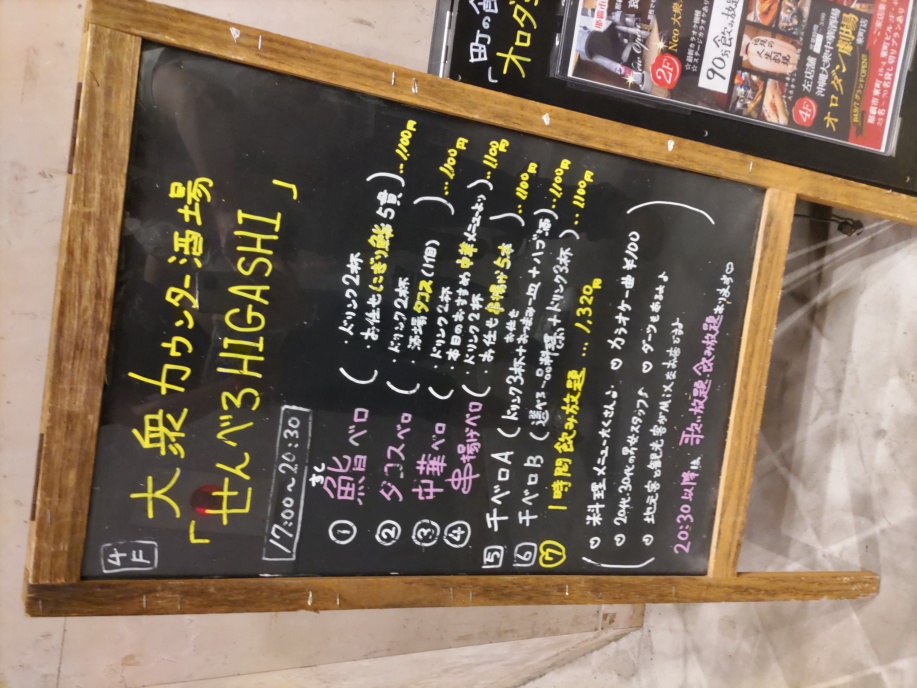 4F
大衆カウンター酒場
「せんべろHIGASHI」
17:00〜20:30
① 鮨ベロ ( ・ドリンク2杯
・お任せにぎり鮨5貫 ) …1,100円
② タコスベロ ( ・ドリンク2杯
・酒場タコス(1個) ) …1,100円
③ 中華ベロ ( ・ドリンク2杯
・本日のおすすめ中華メニューより ) …1100円
④ 串揚げベロ ( ・ドリンク2杯
・お任せ串揚げ5本 ) …1100円
⑤ 千ベロA ( ドリンク3杯+お任せおつまみ一皿+ハブ酒 ) …1100円
⑥ 千ベロB ( 選べる一品料理+ドリンク3杯 ) …1100円
⑦ 1時間飲み放題 … 1,320円
料理メニューたくさん♪ カラオケ一曲¥100
20代、30代の男女スタッフ♪ ダーツもあるよ♪
地元客と観光客がMIXなお店だよ♪
20:30以降は 歌い放題、飲み放題あります♡
「町の
オロダ
2F
Neo 大衆
90分飲み放題
4F
左店舗
沖縄大衆中華酒場
オロダン劇場